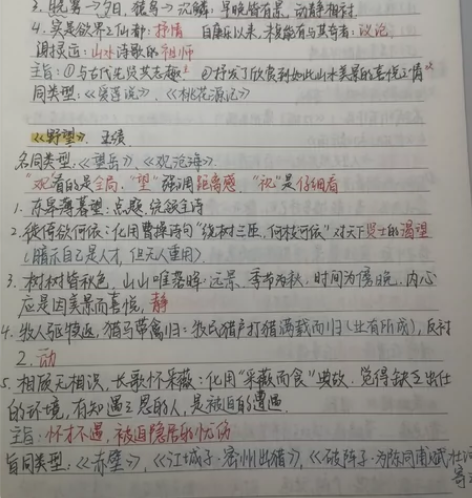 3. 晓雾→夕日，猿鸟→沉鳞：早晚皆有景，动静相衬
4. 实是欲界之仙都：抒情 自康乐以来，未复能有与其奇者：议论
谢灵运：山水诗歌的祖师
主旨：①与古代先贤共志趣 ②抒发了欣赏到如此山水美景的喜悦之情
同类型：《爱莲说》、《桃花源记》
《野望》 王绩
名同类型：《望岳》、《观沧海》
"观"看的是全局，"望"强调距离感，"视"是仔细看
1. 东皋薄暮望：点题，统领全诗
2. 徙倚欲何依：化用曹操诗句"绕树三匝，何枝可依"对天下贤士的渴望
（暗示自己是人才，但无人重用）
3. 树树皆秋色，山山唯落晖：远景，季节为秋，时间为傍晚，内心
应是因美景而喜悦，静
4. 牧人驱犊返，猎马带禽归：牧民猎户打猎满载而归（业有所成），反衬
2. 动
5. 相顾无相识，长歌怀采薇：化用"采薇而食"典故，觉得缺乏出仕
的环境，有知遇之恩的人，是被迫的遭遇
主旨：怀才不遇，被迫隐居的忧伤
旨同类型：《赤壁》，《江城子·密州出猎》，《破阵子·为陈同甫赋壮词
寄